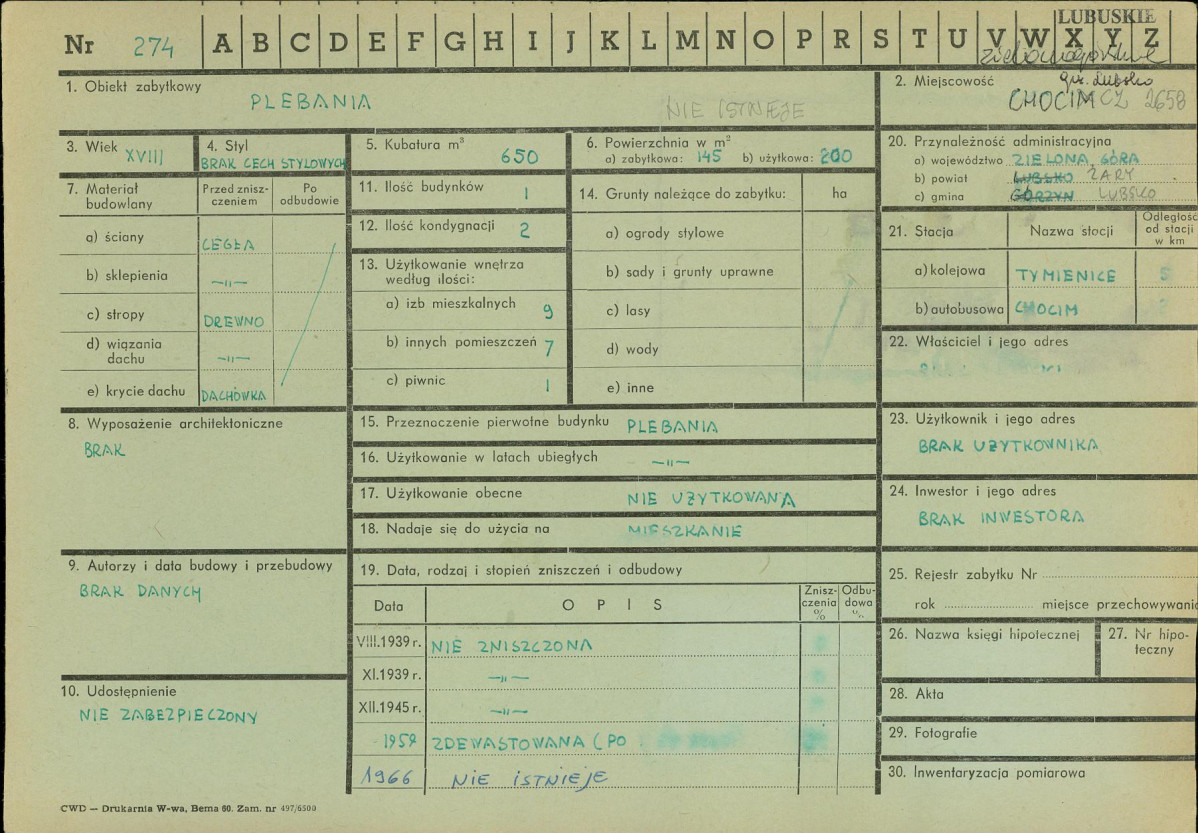 LUBUSKIE
Nr 274 A B C D E F G H I J K L M N O P R S T U V W X Y Z
zielonogórskie
1. Obiekt zabytkowy
PLEBANIA
NIE ISTNIEJE
2. Miejscowość gm. Lubsko
CHOCIMCZ 2658
3. Wiek XVIII
4. Styl
BRAK CECH STYLOWYCH
5. Kubatura m³ 650
6. Powierzchnia w m²
a) zabytkowa: 145 b) użytkowa: 200
20. Przynależność administracyjna
a) województwo ZIELONA GÓRA
b) powiat LUBSKO ŻARY
c) gmina GÓRZYN LUBSKO
7. Materiał budowlany
Przed zniszczeniem
Po odbudowie
a) ściany CEGŁA
b) sklepienia —„—
c) stropy DREWNO
d) wiązania dachu —„—
e) krycie dachu DACHÓWKA
11. Ilość budynków 1
12. Ilość kondygnacji 2
13. Użytkowanie wnętrza
według ilości:
a) izb mieszkalnych 9
b) innych pomieszczeń 7
c) piwnic 1
14. Grunty należące do zabytku: ha
a) ogrody stylowe
b) sady i grunty uprawne
c) lasy
d) wody
e) inne
21. Stacja Nazwa stacji Odległość od stacji w km
a) kolejowa TYMIENICE 5
b) autobusowa CHOCIM
22. Właściciel i jego adres
8. Wyposażenie architektoniczne
BRAK
15. Przeznaczenie pierwotne budynku PLEBANIA
16. Użytkowanie w latach ubiegłych —„—
17. Użytkowanie obecne NIE UŻYTKOWANA
18. Nadaje się do użycia na MIESZKANIE
23. Użytkownik i jego adres
BRAK UŻYTKOWNIKA
24. Inwestor i jego adres
BRAK INWESTORA
9. Autorzy i data budowy i przebudowy
BRAK DANYCH
10. Udostępnienie
NIE ZABEZPIECZONY
19. Data, rodzaj i stopień zniszczeń i odbudowy
Data OPIS Zniszczenia % Odbudowa %
VIII.1939 r. NIE ZNISZCZONA
XI.1939 r. —„—
XII.1945 r. —„—
1959 ZDEWASTOWANA (PO
1966 NIE ISTNIEJE
25. Rejestr zabytku Nr
rok miejsce przechowywani
26. Nazwa księgi hipotecznej
27. Nr hipoteczny
28. Akta
29. Fotografie
30. Inwentaryzacja pomiarowa
CWD — Drukarnia W-wa, Bema 60. Zam. nr 497/6500